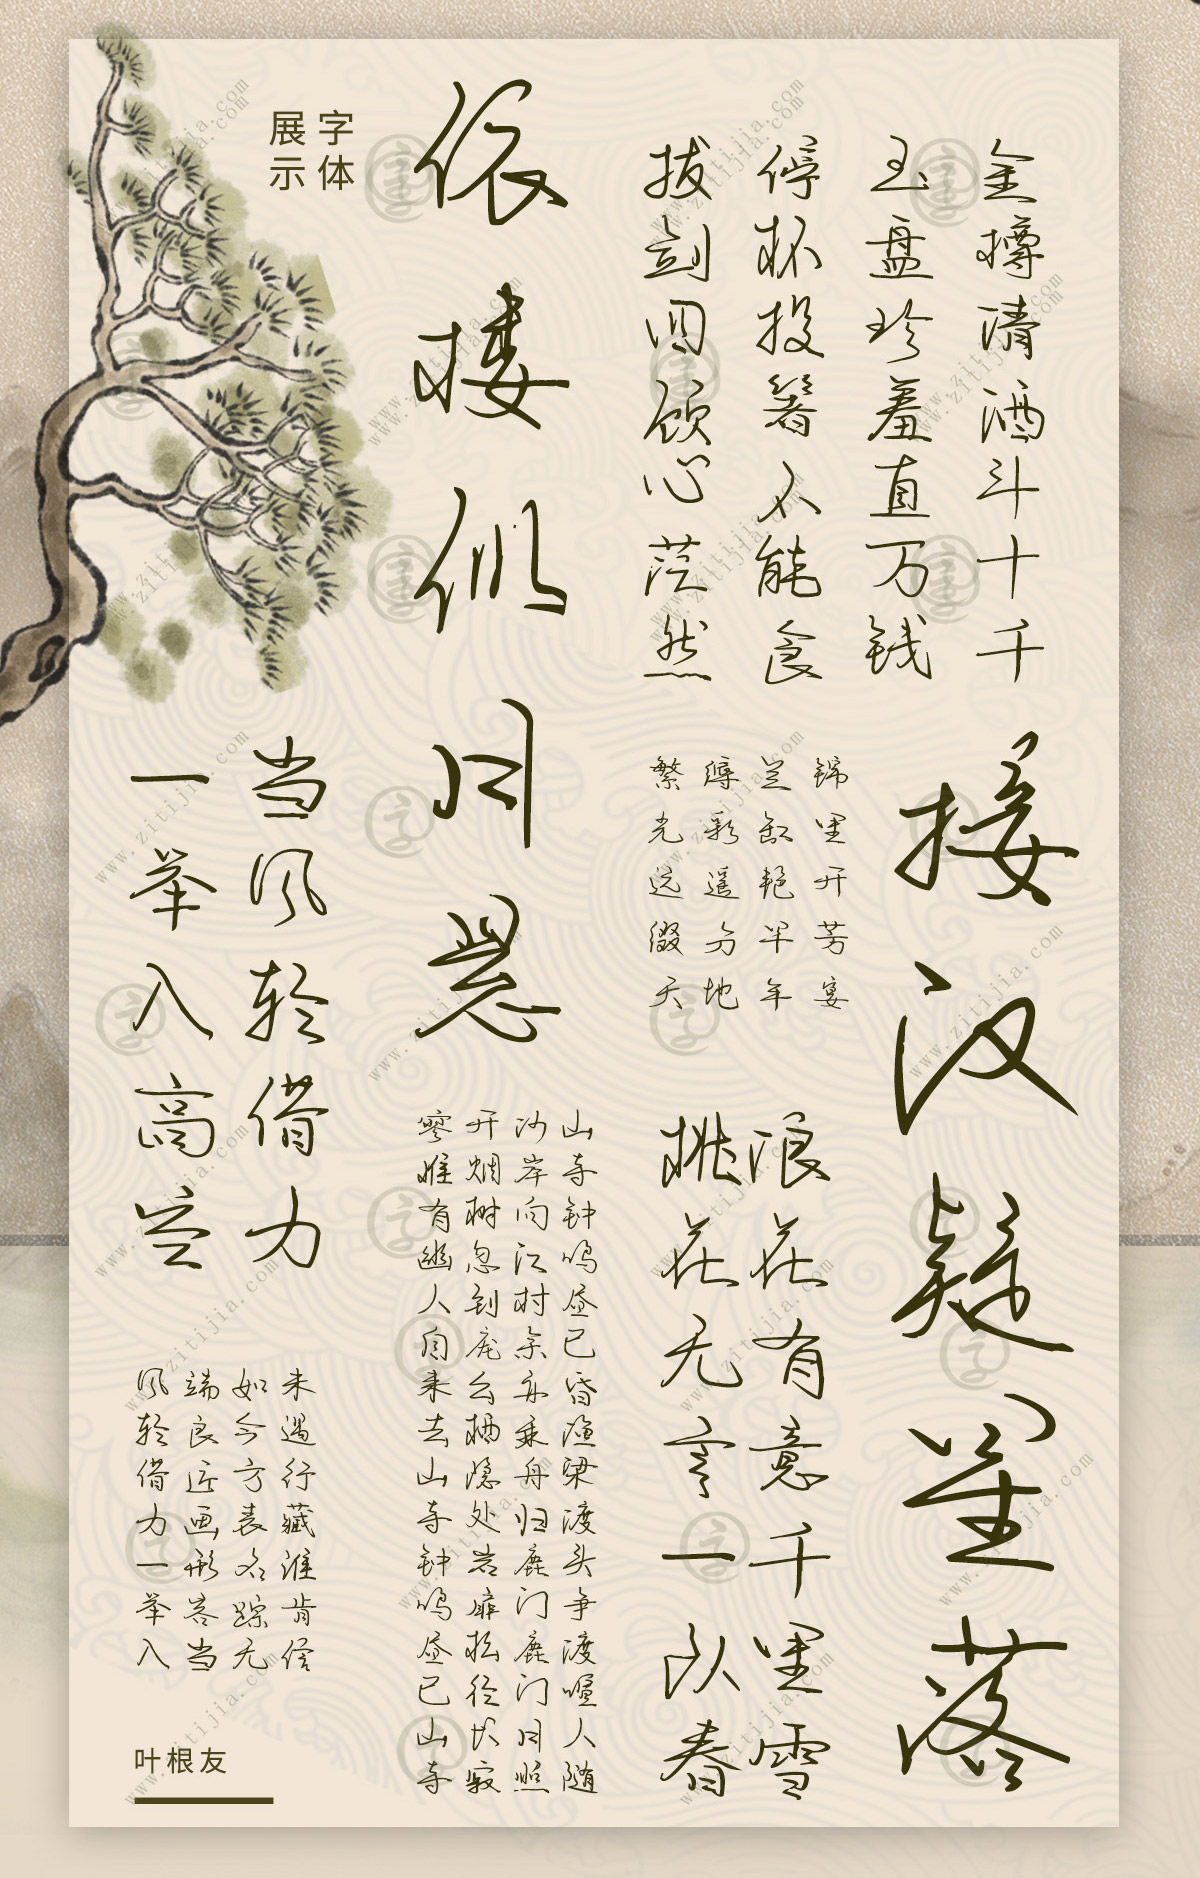 字体
展示
金樽清酒斗十千
玉盘珍羞直万钱
停杯投箸不能食
拔剑四顾心茫然
接汉疑星落
依楼似月悬
锦里开芳宴
兰缸艳早年
缛彩遥分地
繁光远缀天
浪花有意千里雪
桃花无言一队春
当风轻借力
一举入高空
山寺钟鸣昼已昏渔梁渡头争渡喧人随
沙岸向江村余亦乘舟归鹿门鹿门月照
开烟树忽到庞公栖隐处岩扉松径长寂
寥惟有幽人自来去山寺钟鸣昼已山寺
未遇行藏谁肯信
如今方表名踪无
端良匠画形容当
风轻借力一举入
叶根友
www.zitijia.com